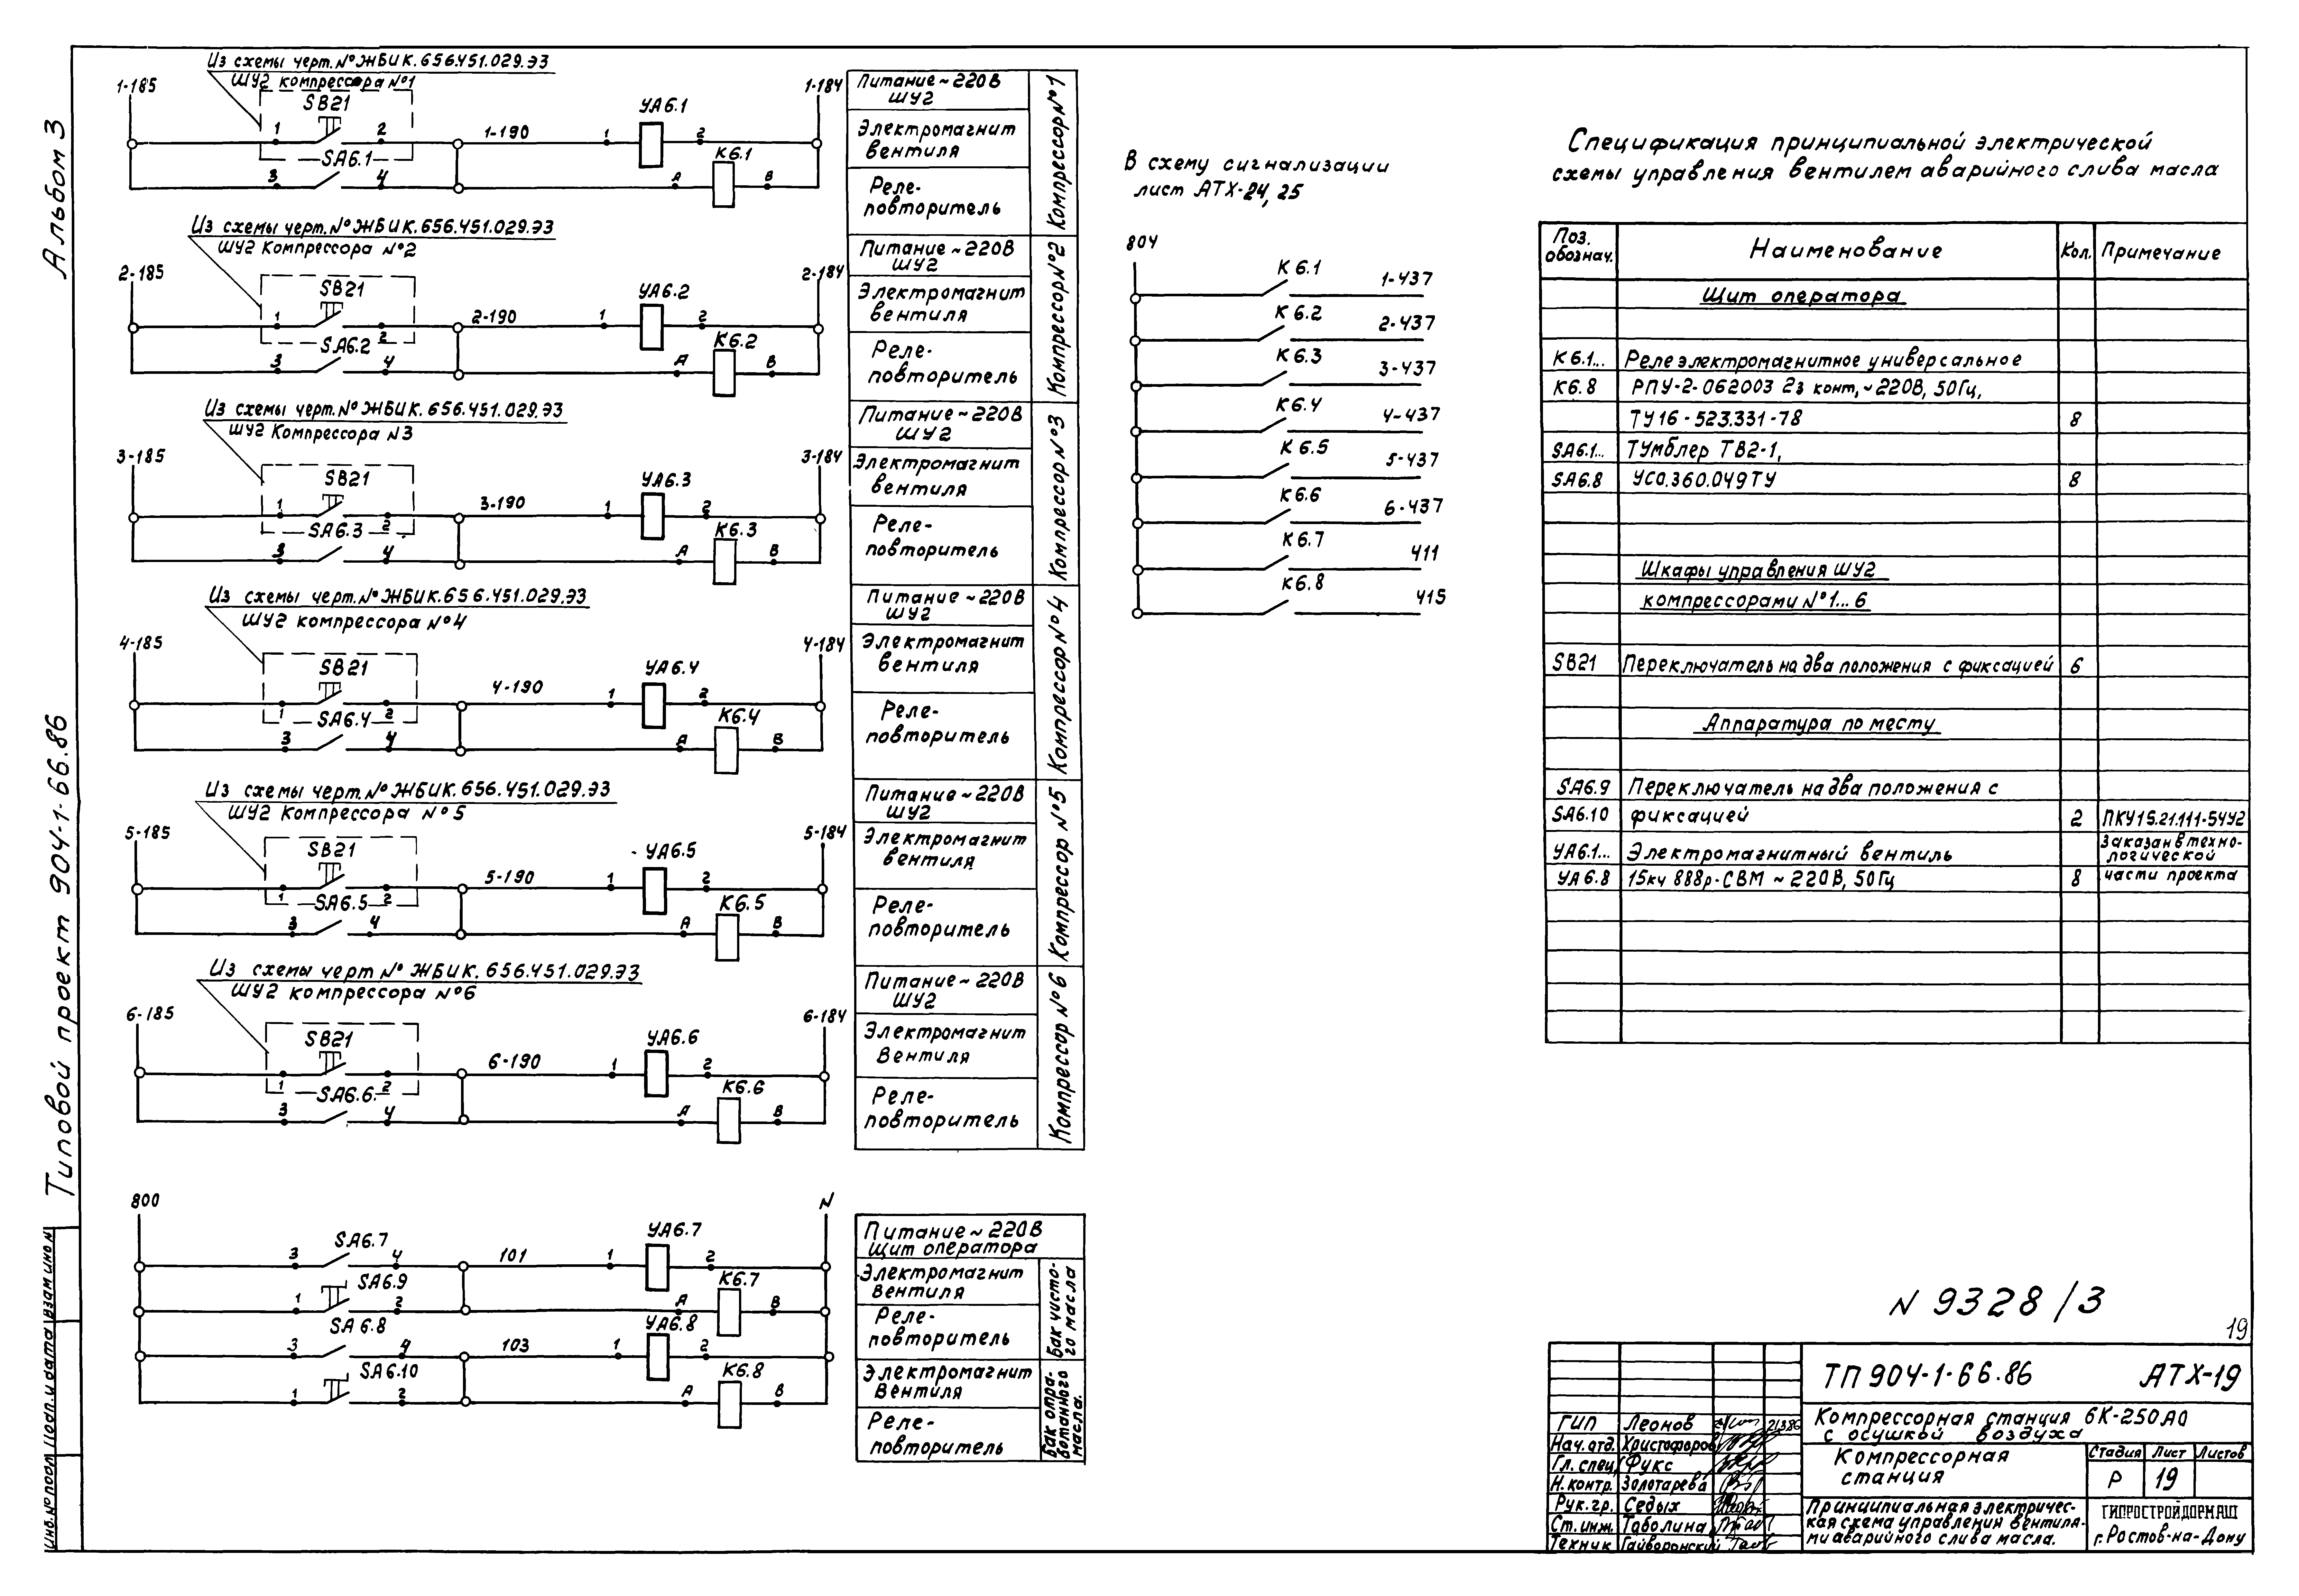 Альбом 3
Типовой проект 904-1-66.86
Инв.№подл Подп. и дата Взам инв №
Из схемы черт. №ЖБИК.656.451.029.ЭЗ
ШУ2 компрессора №1
1-185
SB21
1 2
SA6.1
3 4
1-190
УА6.1
1 2
К6.1
А В
1-184
Питание ~220В
ШУ2
Электромагнит
вентиля
Реле-
повторитель
Компрессор №1
Из схемы черт. №ЖБИК.656.451.029.ЭЗ
ШУ2 Компрессора №2
2-185
SB21
1 2
SA6.2
3 4
2-190
УА6.2
1 2
К6.2
А В
2-184
Питание ~220В
ШУ2
Электромагнит
вентиля
Реле-
повторитель
Компрессор №2
Из схемы черт. №ЖБИК.656.451.029.ЭЗ
ШУ2 Компрессора N3
3-185
SB21
1 2
SA6.3
3 4
3-190
УА6.3
1 2
К6.3
А В
3-184
Питание ~220В
ШУ2
Электромагнит
вентиля
Реле-
повторитель
Компрессор №3
Из схемы черт. №ЖБИК.656.451.029.ЭЗ
ШУ2 компрессора №4
4-185
SB21
1 2
SA6.4
3 4
4-190
УА6.4
1 2
К6.4
А В
4-184
Питание ~220В
ШУ2
Электромагнит
вентиля
Реле-
повторитель
Компрессор №4
Из схемы черт. №ЖБИК.656.451.029.ЭЗ
ШУ2 Компрессора №5
5-185
SB21
1 2
SA6.5
3 4
5-190
УА6.5
1 2
К6.5
А В
5-184
Питание ~220В
ШУ2
Электромагнит
вентиля
Реле-
повторитель
Компрессор №5
Из схемы черт №ЖБИК.656.451.029.ЭЗ
ШУ2 компрессора №6
6-185
SB21
1 2
SA6.6
3 4
6-190
УА6.6
1 2
К6.6
А В
6-184
Питание ~220В
ШУ2
Электромагнит
вентиля
Реле-
повторитель
Компрессор №6
800
N
SA6.7
3 4
101
УА6.7
1 2
SA6.9
1 2
К6.7
А В
SA6.8
3 4
103
УА6.8
1 2
SA6.10
1 2
К6.8
А В
Питание ~220В
щит оператора
Электромагнит
вентиля
Реле-
повторитель
Бак чисто-
го масла
Электромагнит
вентиля
Реле-
повторитель
Бак отра-
ботанного
масла.
В схему сигнализации
лист АТХ-24, 25
804
К6.1 1-437
К6.2 2-437
К6.3 3-437
К6.4 4-437
К6.5 5-437
К6.6 6-437
К6.7 411
К6.8 415
Спецификация принципиальной электрической
схемы управления вентилем аварийного слива масла
Поз. обознач. Наименование Кол. Примечание
Щит оператора
К6.1... Реле электромагнитное универсальное
К6.8 РПУ-2-062003 2з конт, ~220В, 50Гц,
ТУ16-523.331-78 8
SA6.1... Тумблер ТВ2-1,
SA6.8 УСО.360.049ТУ 8
Шкафы управления ШУ2
компрессорами №1...6
SB21 Переключатель на два положения с фиксацией 6
Аппаратура по месту
SA6.9 Переключатель на два положения с
SA6.10 фиксацией 2 ПКУ15.21.111-54У2
УА6.1... Электромагнитный вентиль Заказан в техно-
логической
УА6.8 15кч 888р-СВМ ~220В, 50Гц 8 части проекта
N 9328/3
19
ТП 904-1-66.86 АТХ-19
Компрессорная станция 6К-250АО
с осушкой воздуха
Компрессорная
станция
Стадия Лист Листов
Р 19
Принципиальная электричес-
кая схема управления вентиля-
ми аварийного слива масла.
ГИПРОСТРОЙДОРМАШ
г.Ростов-на-Дону
ГИП Леонов
Нач. отд. Христофоров
Гл. спец. Фукс
Н. контр. Золотарева
Рук. гр. Седых
Ст. инж. Таболина
Техник Гайворонский